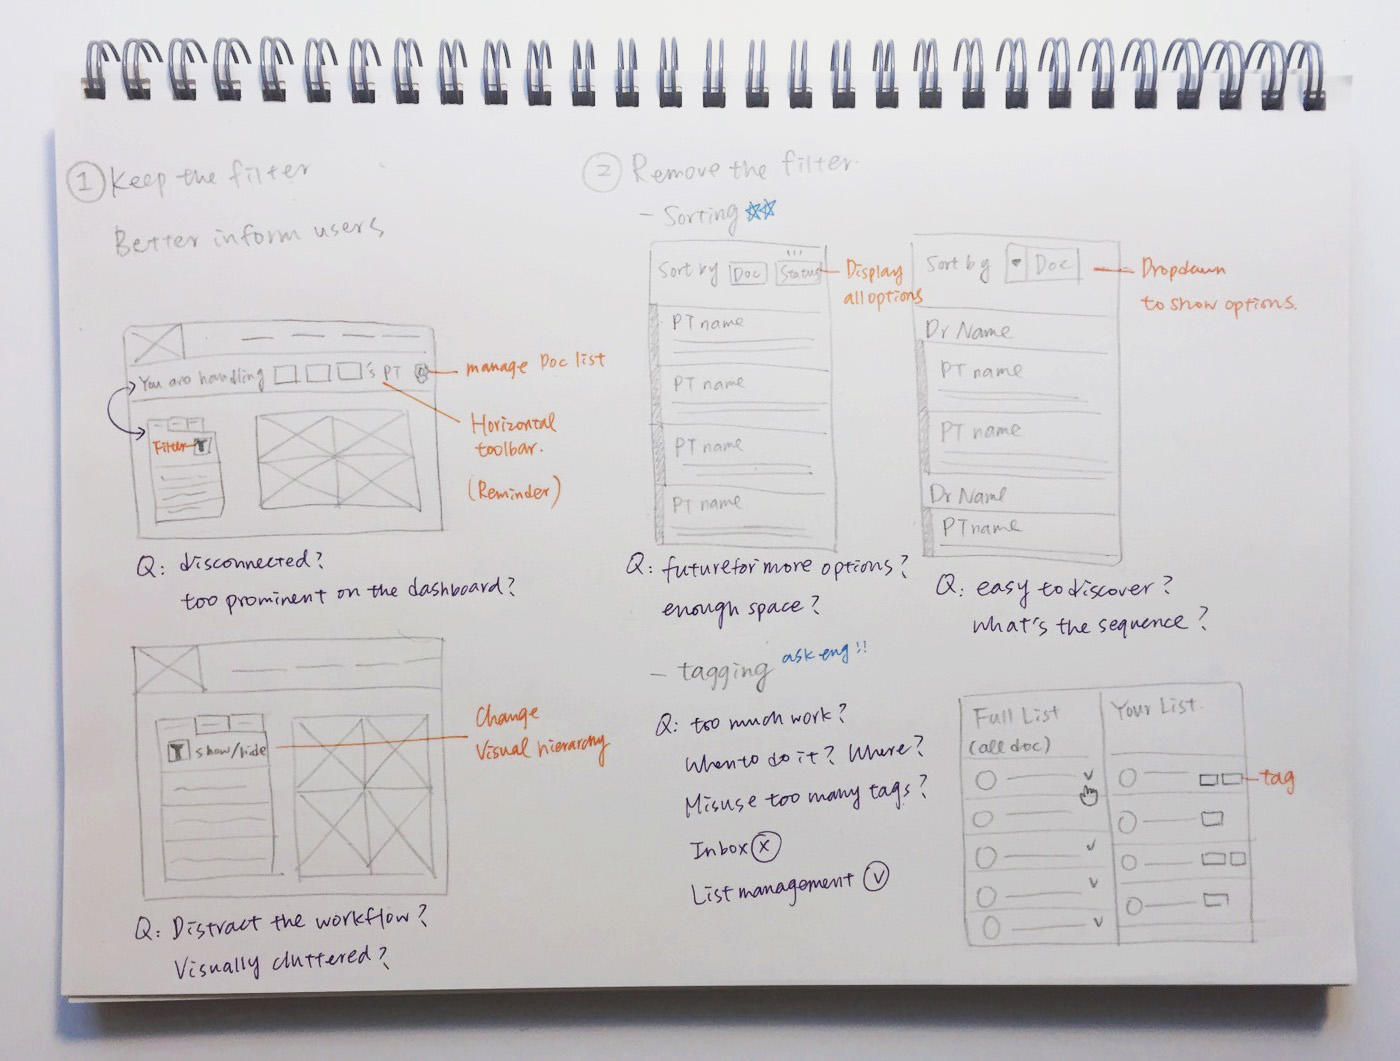 1 Keep the filter
Better inform users
You are handling 's PT
manage Doc list
Filter
Horizontal
toolbar.
(Reminder)
Q: disconnected?
too prominent on the dashboard?
show/hide
Change
Visual hierarchy
Q: Distract the workflow?
Visually cluttered?
2 Remove the filter.
- Sorting
Sort by Doc Status
Display
all options
PT name
PT name
PT name
PT name
Q: future for more options?
enough space?
Sort by Doc
Dropdown
to show options.
Dr Name
PT name
PT name
Dr Name
PT name
Q: easy to discover?
what's the sequence?
- tagging ask eng!!
Q: too much work?
When to do it? Where?
Misuse too many tags?
Inbox x
List management v
Full List
(all doc)
Your List.
tag